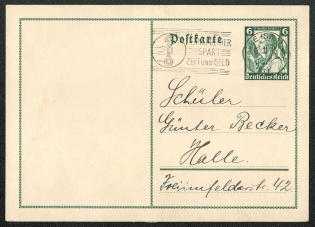 Postkarte
SPART
ZEIT UND GELD
6 6
Deutsches Reich
Schüler
Günter Becker
Halle.
Freiimfelderstr. 42